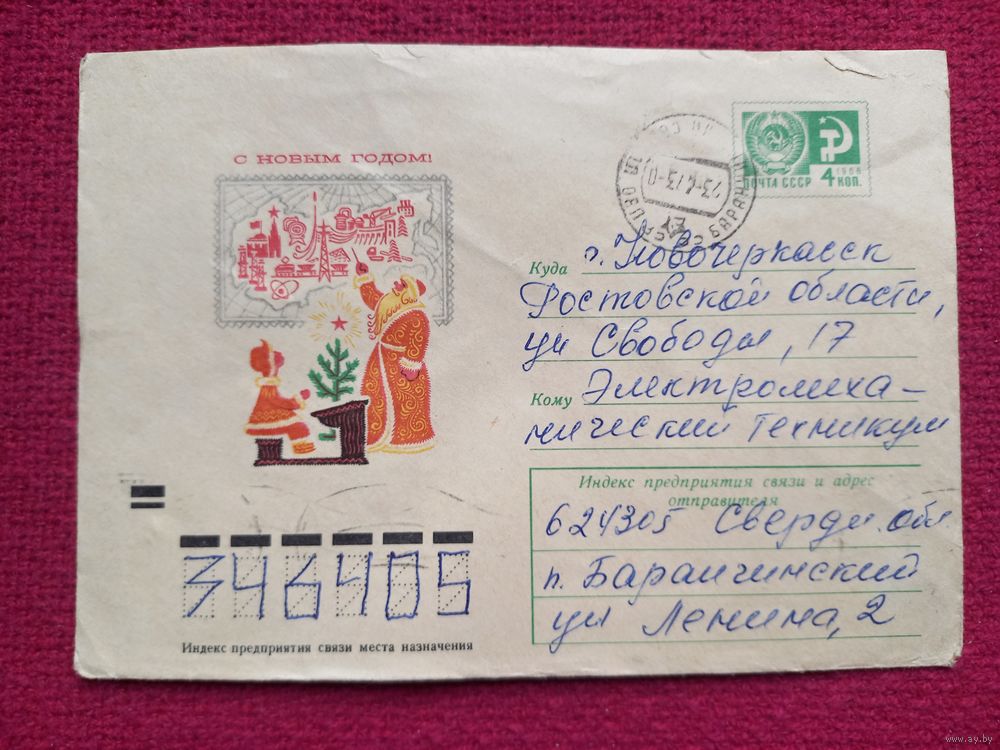 С НОВЫМ ГОДОМ!
ПОЧТА СССР
1966
4 КОП.
Куда г. Новочеркасск
Ростовской области,
ул Свободы, 17
Кому Электромеха-
нический Техникум
Индекс предприятия связи и адрес
отправителя
624305 Свердл. обл
п. Баранчинский
ул Ленина, 2
346405
Индекс предприятия связи места назначения
www.ay.by